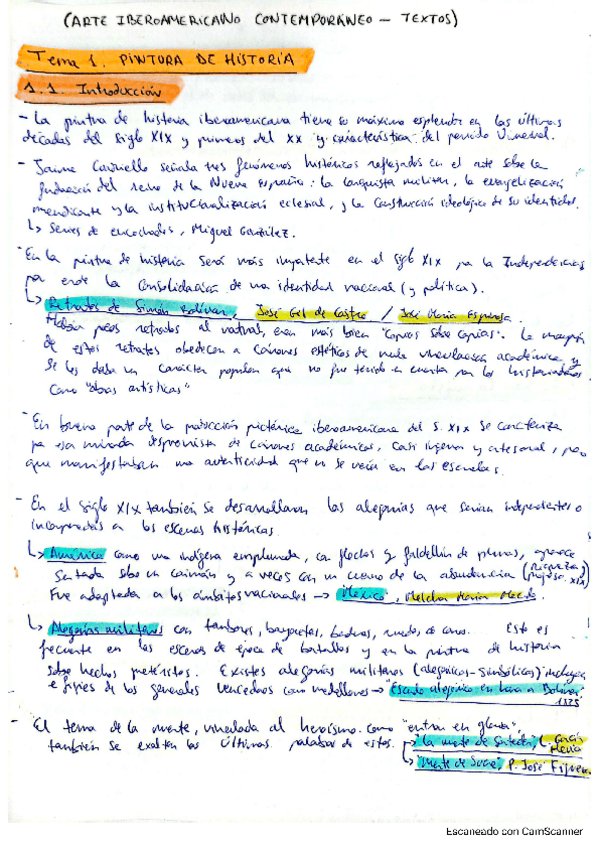 (ARTE IBEROAMERICANO CONTEMPORÁNEO – TEXTOS)
Tema 1. PINTURA DE HISTORIA
1.1. Introducción
- La pintura de historia iberoamericana tiene su máximo esplendor en las últimas
décadas del siglo XIX y primeros del XX y característica del periodo virreinal.
- Jaime Cuadriello señala tres fenómenos históricos reflejados en el arte sobre la
fundación del reino de la Nueva España: la conquista militar, la evangelización
mendicante y la institucionalización eclesial, y la construcción ideológica de su identidad.
↳ Series de enconchados, Miguel González.
- En la pintura de historia será más importante en el siglo XIX por la Independencias
por ende la consolidación de una identidad nacional (y política).
↳ Retratos de Simón Bolívar, José Gil de Castro / José María Espinosa.
Habían pocos retratos al natural, eran más bien "copias sobre copias". La mayoría
de estos retratos obedecen a cánones estéticos de nula vinculación académica y
se les daba un carácter popular que no fue tenido en cuenta por los historiadores
como "obras artísticas"
- En buena parte de la producción pictórica iberoamericana del S. XIX se caracteriza
por esa mirada desprovista de cánones académicos, casi ingenua y artesanal, pero
que manifestaban una autenticidad que no se veía en las escuelas.
- En el siglo XIX también se desarrollaron las alegorías que serían independientes o
incorporadas a las escenas históricas.
↳ América como una indígena emplumada, con flechas y faldellín de plumas, aparece
sentada sobre un caimán y a veces con un cuerno de la abundancia (riqueza y progreso XIX)
Fue adaptada a los ámbitos nacionales → México, Melchor María Mercado.
↳ Alegorías militares con tambores, bayonetas, banderas, ruedas de carros. Esto es
frecuente en las escenas de época de batallas y en la pintura de historia
sobre hechos pretéritos. Existes alegorías militares (alegóricos-simbólicos) incluyen
efigies de los generales vencedores como medallones → "Escudo alegórico en honor a Bolívar,
1825
- El tema de la muerte, vinculada al heroísmo como "entrar en gloria",
también se exaltan las últimas palabras de estos.
"La muerte de Santander", García Hevia
"Muerte de Sucre", P. José Figueroa
Escaneado con CamScanner